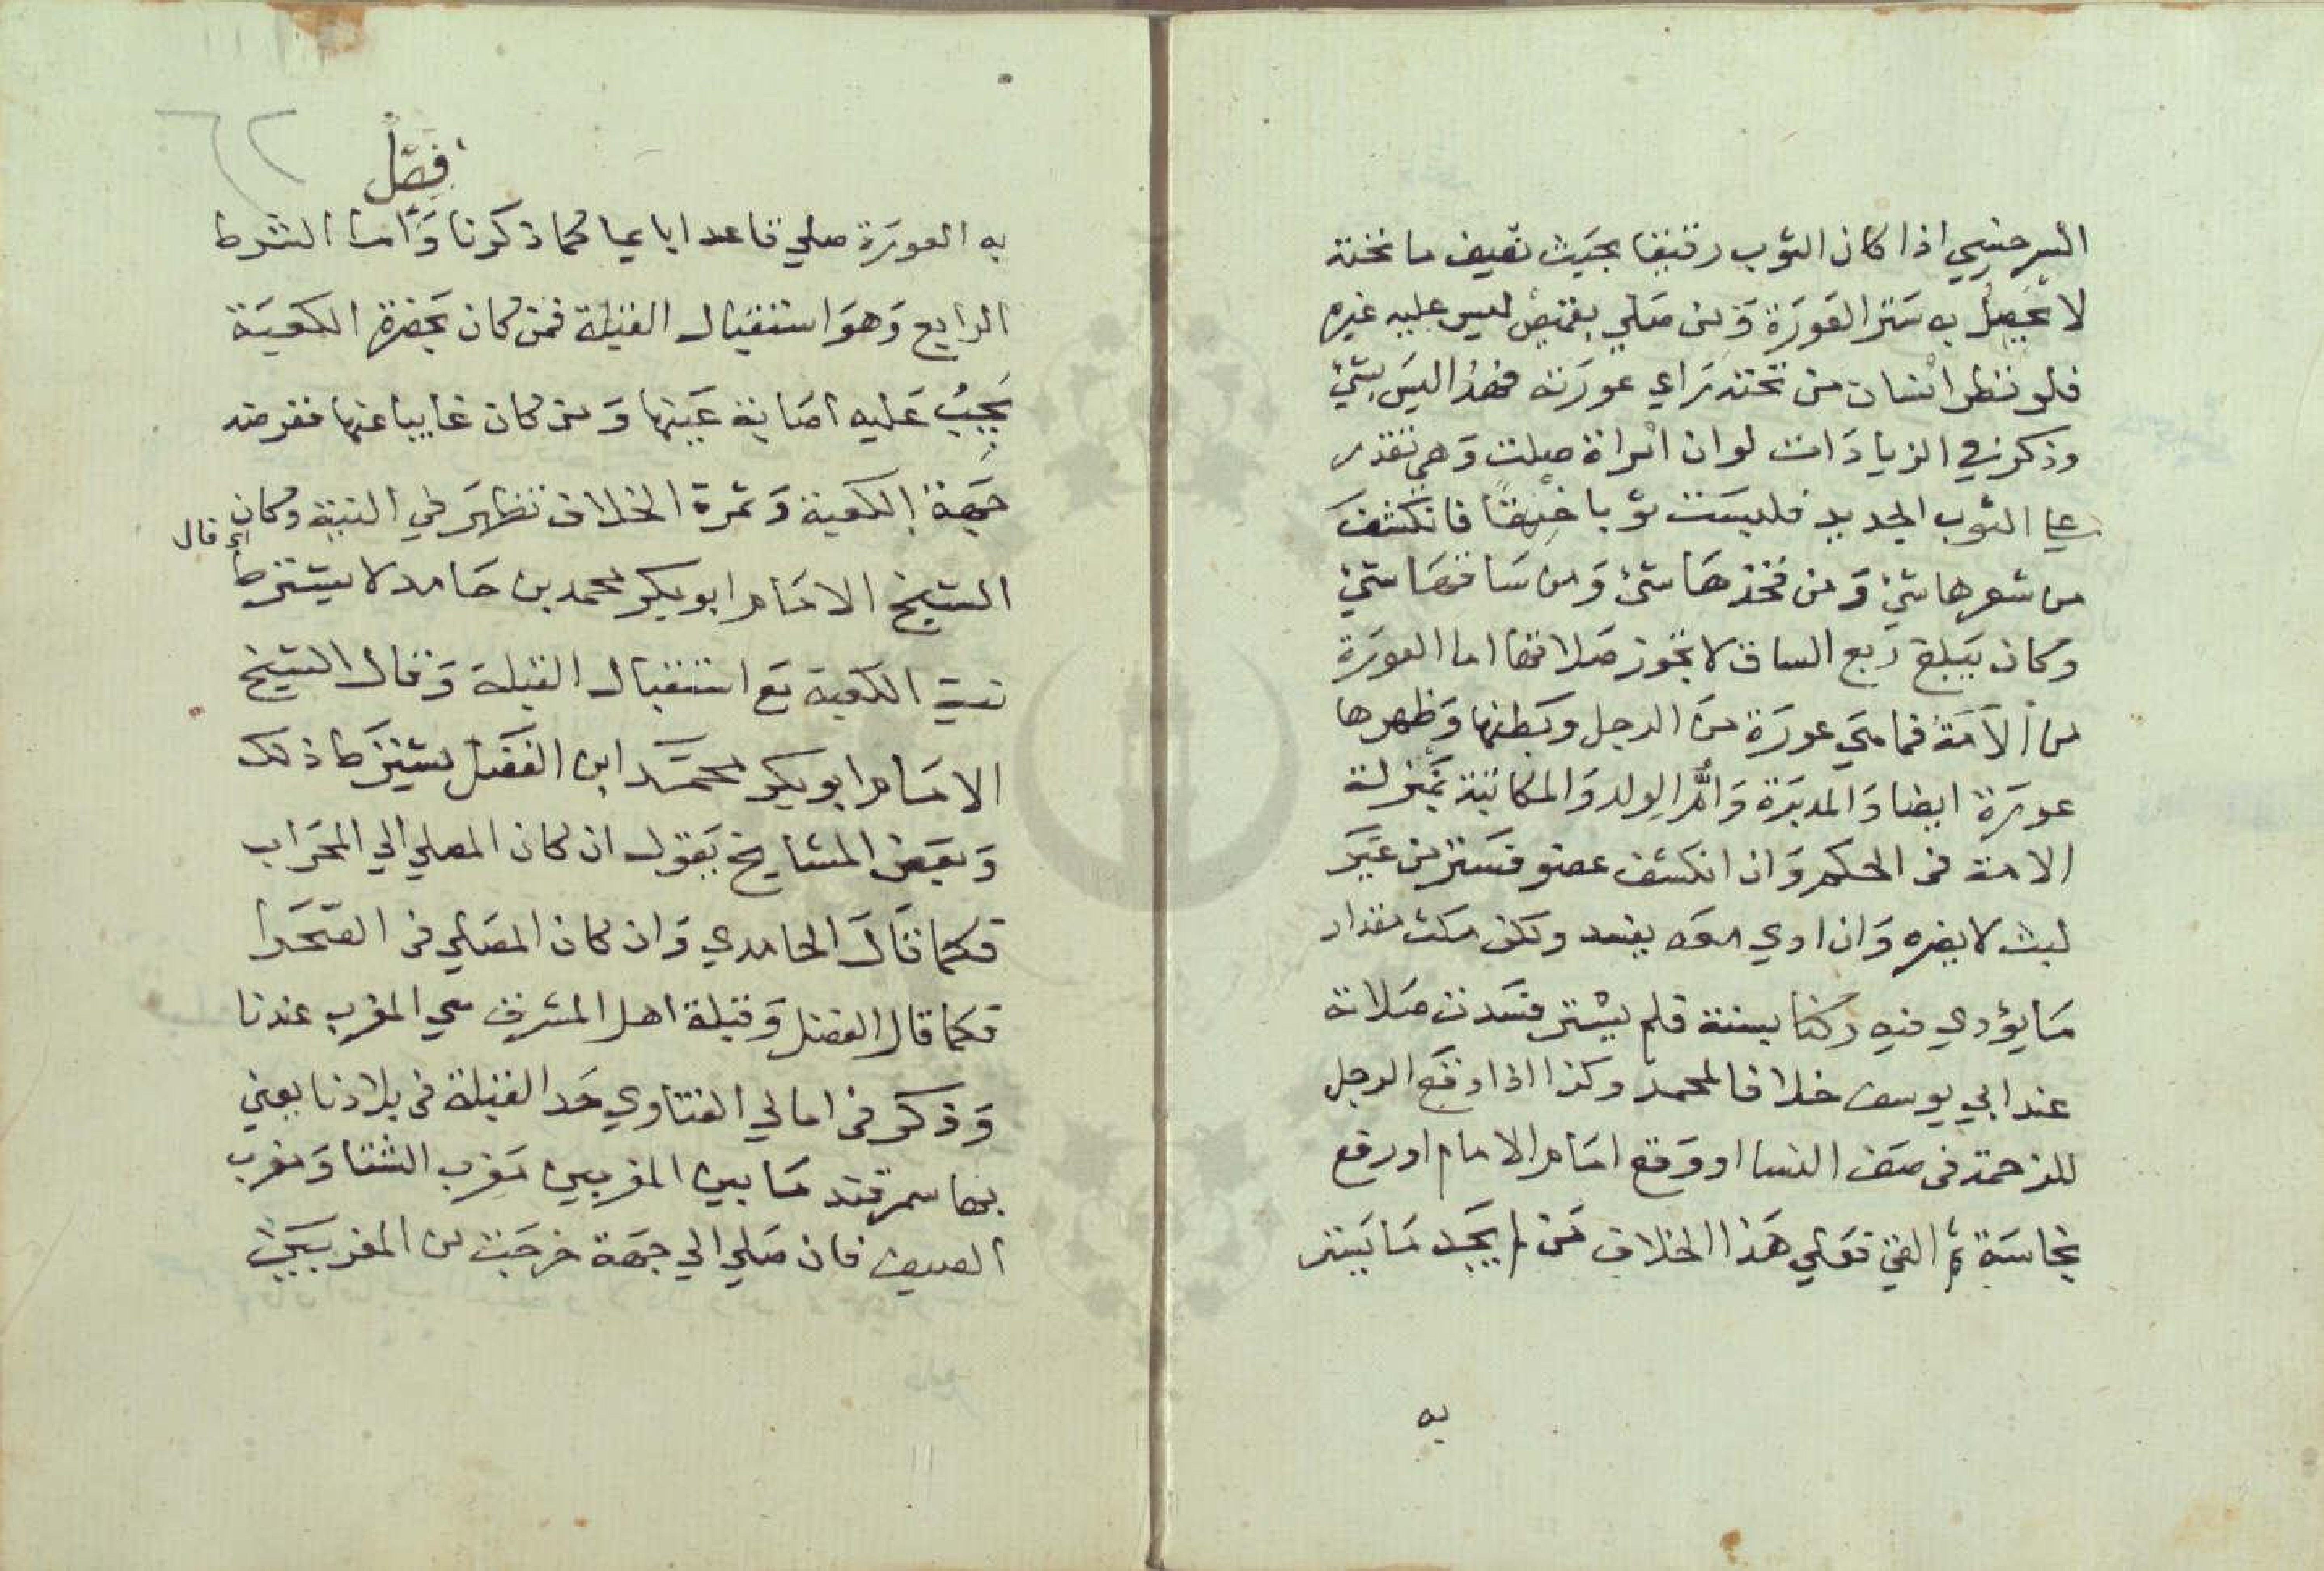 السرخسي اذا كان الثوب رقيقا بحيث تصيف ما تحته
لا يحصل به ستر العورة ومن صلي بقميص ليس عليه غيره
فلو نظر انسان من تحته راي عورته فهذا ليس بشئ
وذكر في الزيادات لو ان امراة صلت وهي تقدر
علي الثوب الجديد فلبست ثوبا فانكشف
من شعرها شئ ومن فخذها شئ ومن ساقها شئ
وكان يبلغ ربع الساق لا تجوز صلاتها اما العورة
من الأمة فما هي عورة من الرجل وبطنها وظهرها
عورة ايضا والمدبرة وام الولد والمكاتبة بمنزلة
الامة في الحكم وان انكشف عضو فستر من غير
لبث لا يضره وان ادي معه يفسد ولكن مكث مقدار
ما يؤدي فيه ركنا بسنة فلم يستر فسدت صلاته
عند ابي يوسف خلافا لمحمد وكذا اذا وقع الرجل
للزحمة في صف النسا او وقع امام الامام او رفع
نجاسة ثم القي فعلي هذا الخلاف من لم يجد ما يستر
به
٦٢
فصل
به العورة صلي قاعدا بايما كما ذكرنا واما الشرط
الرابع وهو استقبال القبلة فمن كان بحضرة الكعبة
يجب عليه اصابة عينها ومن كان غايبا عنها ففرضه
جهة الكعبة وثمرة الخلاف تظهر في النية وكان
الشيخ الامام ابو بكر محمد بن حامد لا يشترط
نية الكعبة مع استقبال القبلة وقال الشيخ
الامام ابو بكر محمد ابن الفضل يشترط ذلك
وبعض المشايخ يقول ان كان المصلي الي المحراب
فكما قال الحامدي وان كان المصلي في الصحرا
فكما قال الفضل وقبلة اهل المشرق هي المغرب عندنا
وذكر في امالي الفتاوي حد القبلة في بلادنا يعني
بها سمرقند ما بين المغربين مغرب الشتا ومغرب
الصيف فان صلي الي جهة خرجت من المغربين